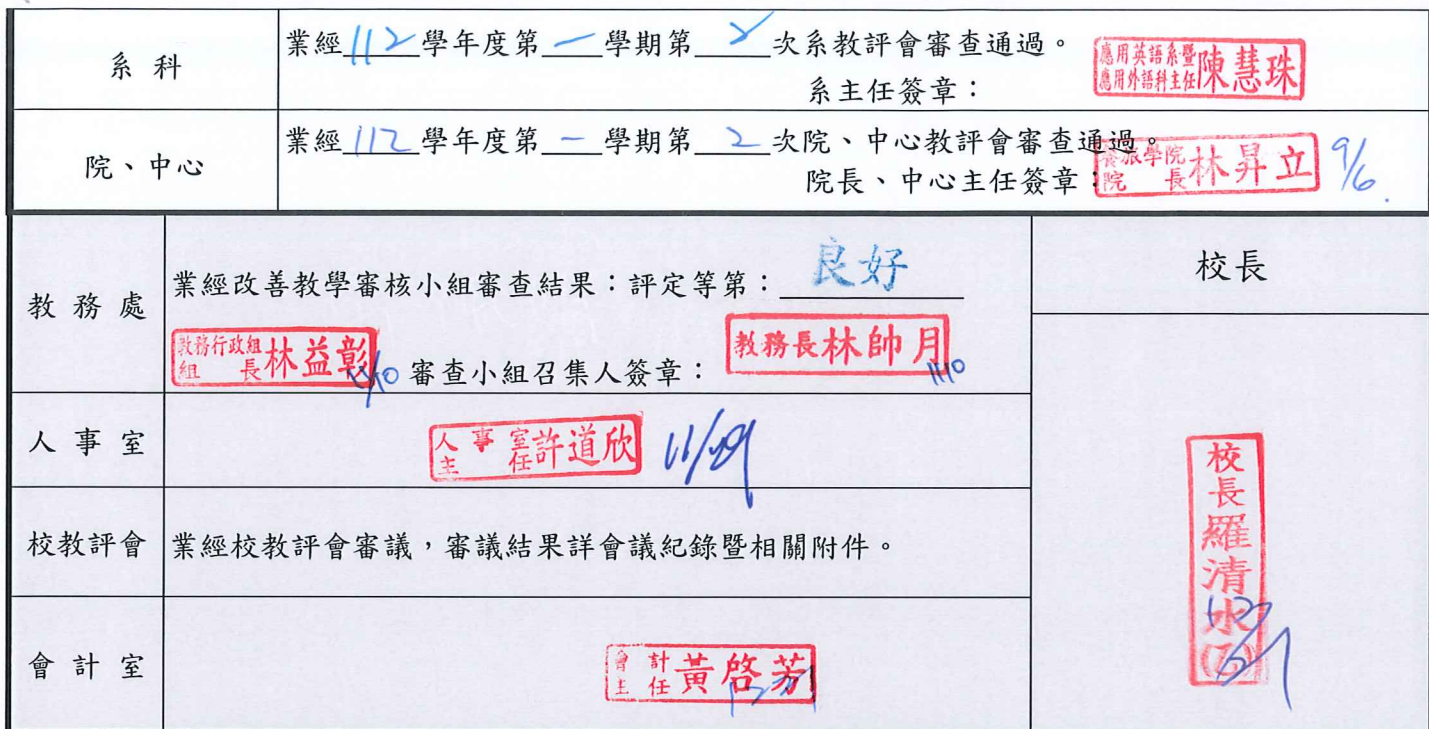 系科
業經112學年度第一學期第2次系教評會審查通過。
系主任簽章：
應用英語系暨應用外語科主任陳慧珠
院、中心
業經112學年度第一學期第2次院、中心教評會審查通過。
院長、中心主任簽章：
餐旅學院院長林昇立 9/6
教務處
業經改善教學審核小組審查結果：評定等第：良好
教務行政組組長林益彰
審查小組召集人簽章：
教務長林帥月
校長
人事室
人事室主任許道欣
校教評會
業經校教評會審議，審議結果詳會議紀錄暨相關附件。
會計室
會計主任黃啓芳
校長羅清水(乙)